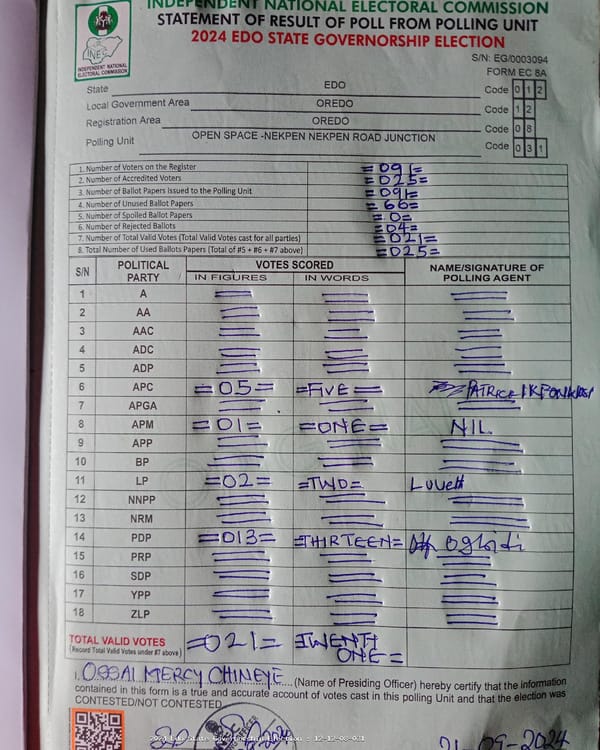 INDEPENDENT NATIONAL ELECTORAL COMMISSION
STATEMENT OF RESULT OF POLL FROM POLLING UNIT
2024 EDO STATE GOVERNORSHIP ELECTION
INEC
INDEPENDENT NATIONAL
ELECTORAL COMMISSION
S/N: EG/0003094
FORM EC 8A
State EDO Code 0 1 2
Local Government Area OREDO Code 1 2
Registration Area OREDO Code 0 8
Polling Unit OPEN SPACE -NEKPEN NEKPEN ROAD JUNCTION Code 0 3 1
1. Number of Voters on the Register =091=
2. Number of Accredited Voters =025=
3. Number of Ballot Papers Issued to the Polling Unit =091=
4. Number of Unused Ballot Papers =66=
5. Number of Spoiled Ballot Papers =0=
6. Number of Rejected Ballots =04=
7. Number of Total Valid Votes (Total Valid Votes cast for all parties) =021=
8. Total Number of Used Ballots Papers (Total of #5 + #6 + #7 above) =025=
S/N POLITICAL PARTY VOTES SCORED NAME/SIGNATURE OF POLLING AGENT
IN FIGURES IN WORDS
1 A
2 AA
3 AAC
4 ADC
5 ADP
6 APC =05= =FIVE= PATRICK
7 APGA
8 APM =01= =ONE= NIL
9 APP
10 BP
11 LP =02= =TWO=
12 NNPP
13 NRM
14 PDP =013= =THIRTEEN=
15 PRP
16 SDP
17 YPP
18 ZLP
TOTAL VALID VOTES =021= =TWENTY
(Record Total Valid Votes under #7 above) ONE=
I, OSSAI MERCY CHINEYE (Name of Presiding Officer) hereby certify that the information
contained in this form is a true and accurate account of votes cast in this polling Unit and that the election was
CONTESTED/NOT CONTESTED.
2024 Edo State Governorship Election - 12-12-08-031
21-09-2024